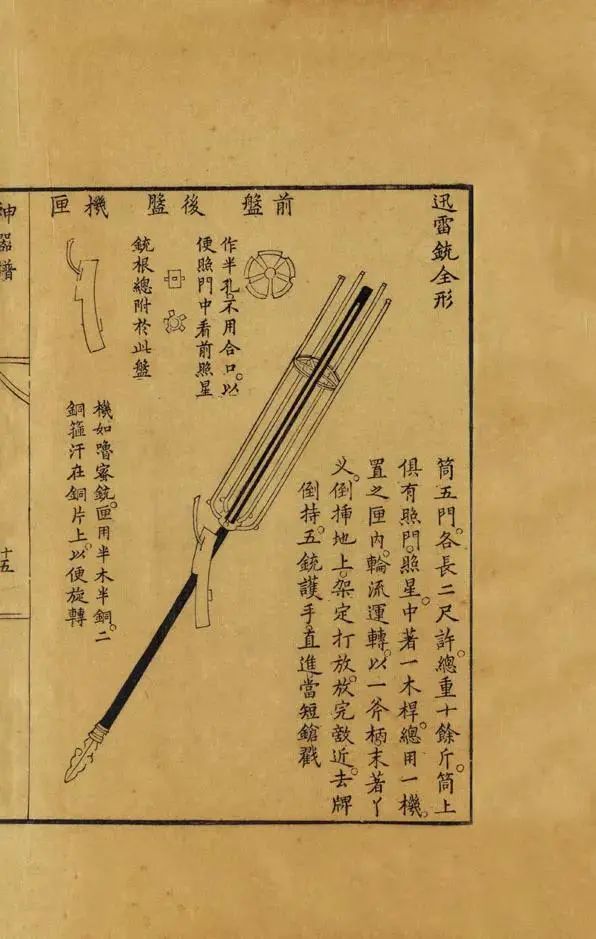 迅雷銃全形
筒五門。各長二尺許。總重十餘斤。筒上
俱有照門。照星。中著一木桿。總用一機。
置之匣內。輪流運轉。以一斧柄。末著丫
义。倒插地上。架定打放。放完敵近。去牌
倒持五銃護手。直進當短鎗戳
前盤
作半孔。不用合口。以
便照門中看前照星
後盤
銃根總附於此盤
機匣
機如嚕蜜銃。匣用半木半銅。二
銅箍汗在銅片上。以便旋轉
神器譜
十五